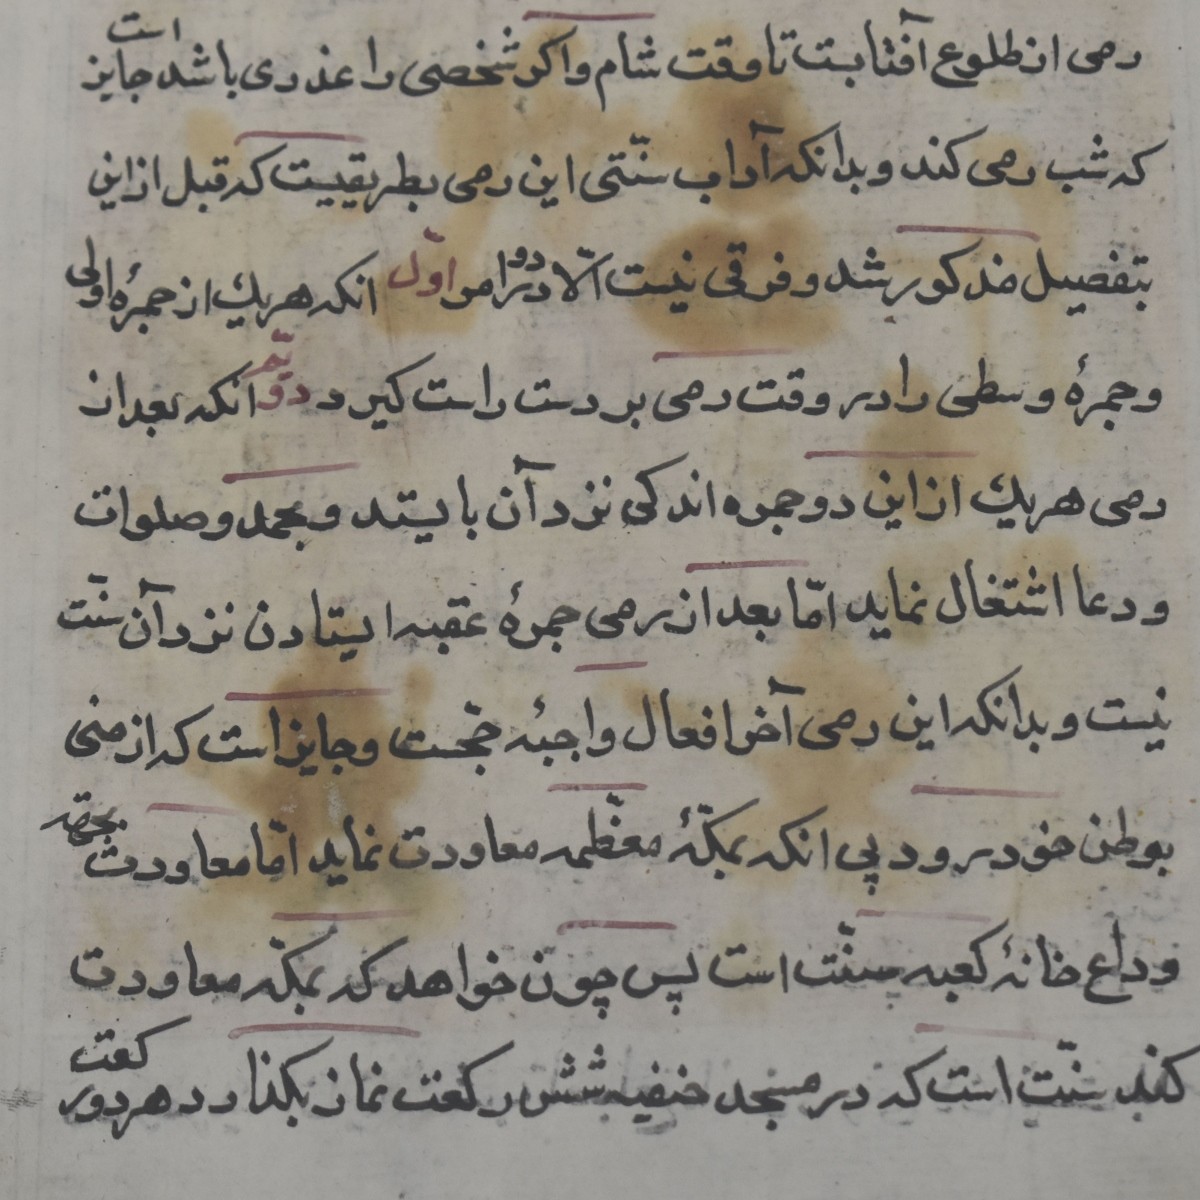 رمی از طلوع آفتابست تا وقت شام و اکر شخصی را عذری باشد جایز است
که شب رمی کند و بدانکه آداب سنّتی این رمی بطریقیست که قبل از این
بتفصیل مذکور شد و فرقی نیست الّا در دو امر اوّل انکه هر یك از جمرهٔ اولی
و جمرهٔ وسطی را در وقت رمی بر دست راست کیرد دویّم انکه بعد از
رمی هر یك از این دو جمره اندکی نزد آن بایستد و بحمد و صلوات
و دعا اشتغال نماید امّا بعد از رمی جمرهٔ عقبه ایستادن نزد آن سنّت
نیست و بدانکه این رمی آخر افعال واجبهٔ حجّست و جایز است که از منی
بوطن خود رود پی انکه بمکّهٔ معظّمه معاودت نماید امّا معاودت بجهة
وداع خانهٔ کعبه سنّت است پس چون خواهد که بمکّه معاودت
کند سنّت است که در مسجد خنفیه شش رکعت نماز بکذارد هر دو رکعت